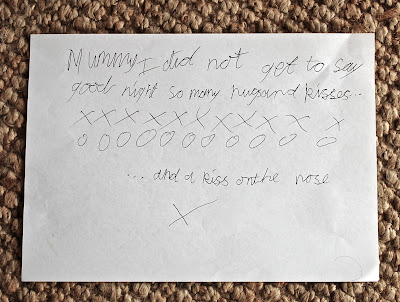 Mummy I did not get to say
good night so many hugs and kisses...
X X X X X X X X X X X
O O O O O O O O O O O
... and a kiss on the nose
X